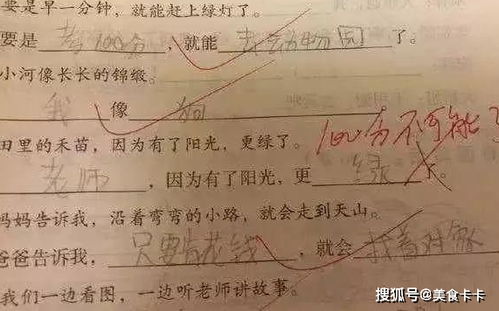 要是早一分钟，就能赶上绿灯了。
要是考100分，就能去动物园了。
小河像长长的锦缎。
我像狗
田里的禾苗，因为有了阳光，更绿了。
100分不可能
老师，因为有了阳光，更绿了。
妈妈告诉我，沿着弯弯的小路，就会走到天山。
爸爸告诉我，只要肯花钱，就会找着对象
我们一边看图，一边听老师讲故事。
搜狐号@美食卡卡